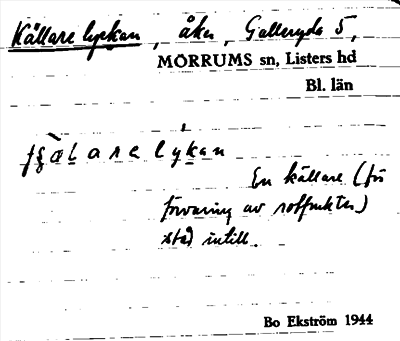 Källare lyckan, åker, Galleryds 5,
MÖRRUMS sn, Listers hd
Bl. län
lykan
En källare (för
förvaring av rotfrukter)
stod intill.
Bo Ekström 1944